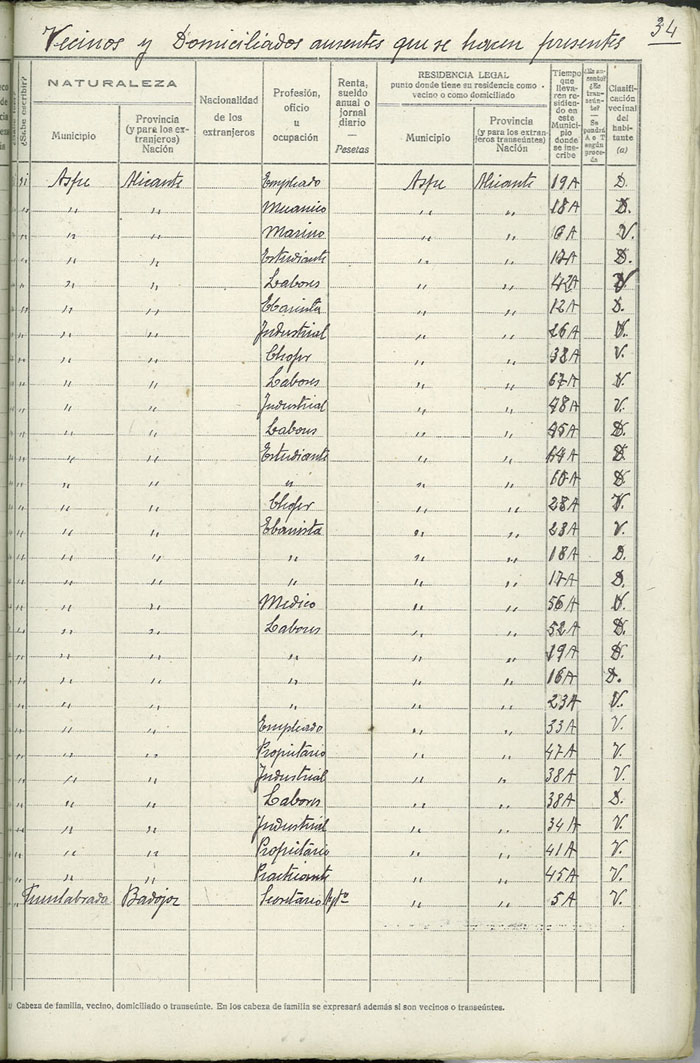 34
Vecinos y Domiciliados ausentes que se hacen presentes
¿Sabe escribir?
NATURALEZA
Municipio
Provincia (y para los extranjeros) Nación
Nacionalidad de los extranjeros
Profesión, oficio u ocupación
Renta, sueldo anual o jornal diario — Pesetas
RESIDENCIA LEGAL
punto donde tiene su residencia como vecino o como domiciliado
Municipio
Provincia (y para los extranjeros transeúntes) Nación
Tiempo que lleva en residiendo en este Municipio donde se inscribe
Clasificación vecinal del habitante (a)
si Aspe Alicante Empleado Aspe Alicante 19 A D.
" " " Mecanico " " 18 A D.
" " " Marino " " 6 A V.
" " " Estudiante " " 17 A D.
" " " Labores " " 42 A
" " " Ebanista " " 12 A D.
" " " Industrial " " 26 A V.
" " " Chofer " " 38 A V.
" " " Labores " " 67 A V.
" " " Industrial " " 48 A V.
" " " Labores " " 45 A D.
" " " Estudiante " " 64 A D.
" " " " " " 60 A D.
" " " Chofer " " 28 A V.
" " " Ebanista " " 23 A V.
" " " " " " 18 A D.
" " " " " " 17 A D.
" " " Medico " " 56 A V.
" " " Labores " " 52 A D.
" " " " " " 19 A D.
" " " " " " 16 A D.
" " " " " " 23 A V.
" " " Empleado " " 33 A V.
" " " Propietario " " 47 A V.
" " " Industrial " " 38 A V.
" " " Labores " " 38 A D.
" " " Industrial " " 34 A V.
" " " Propietario " " 41 A V.
" " " Practicante " " 45 A V.
" Fuenlabrada Badajoz Secretario Aytº " " 5 A V.
Cabeza de familia, vecino, domiciliado o transeúnte. En los cabeza de familia se expresará además si son vecinos o transeúntes.